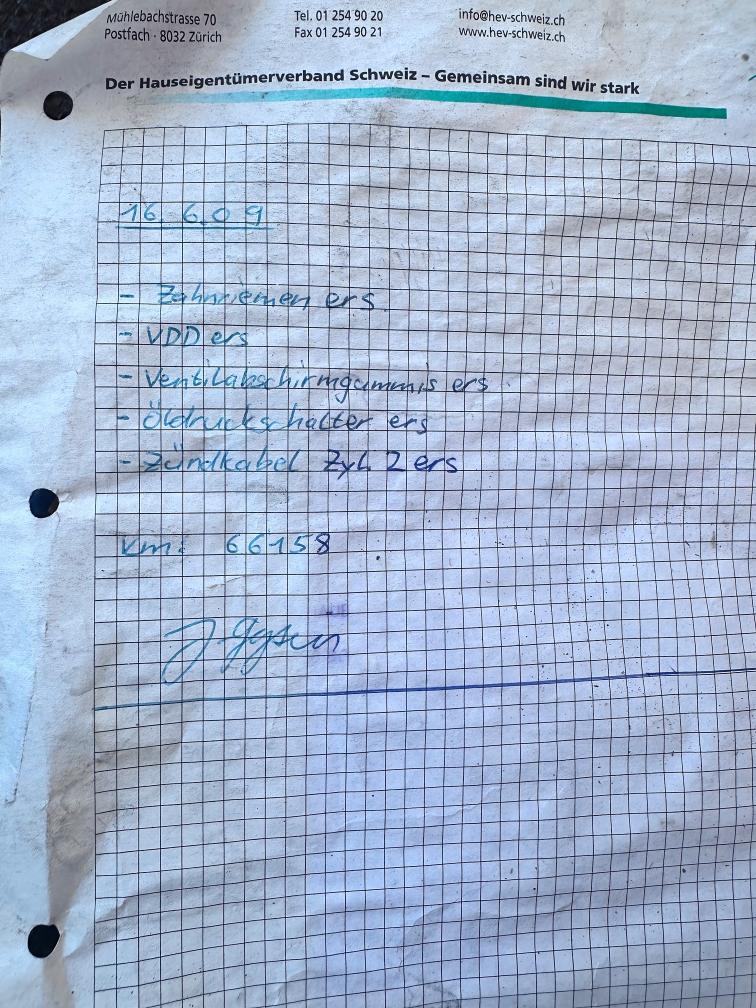 Mühlebachstrasse 70
Postfach · 8032 Zürich
Tel. 01 254 90 20
Fax 01 254 90 21
info@hev-schweiz.ch
www.hev-schweiz.ch
Der Hauseigentümerverband Schweiz – Gemeinsam sind wir stark
16. 6.09
- Zahnriemen ers.
- VDD ers
- Ventilabschirmgummis ers.
- Öldruckschalter ers
- Zündkabel Zyl. 2 ers
km: 66158